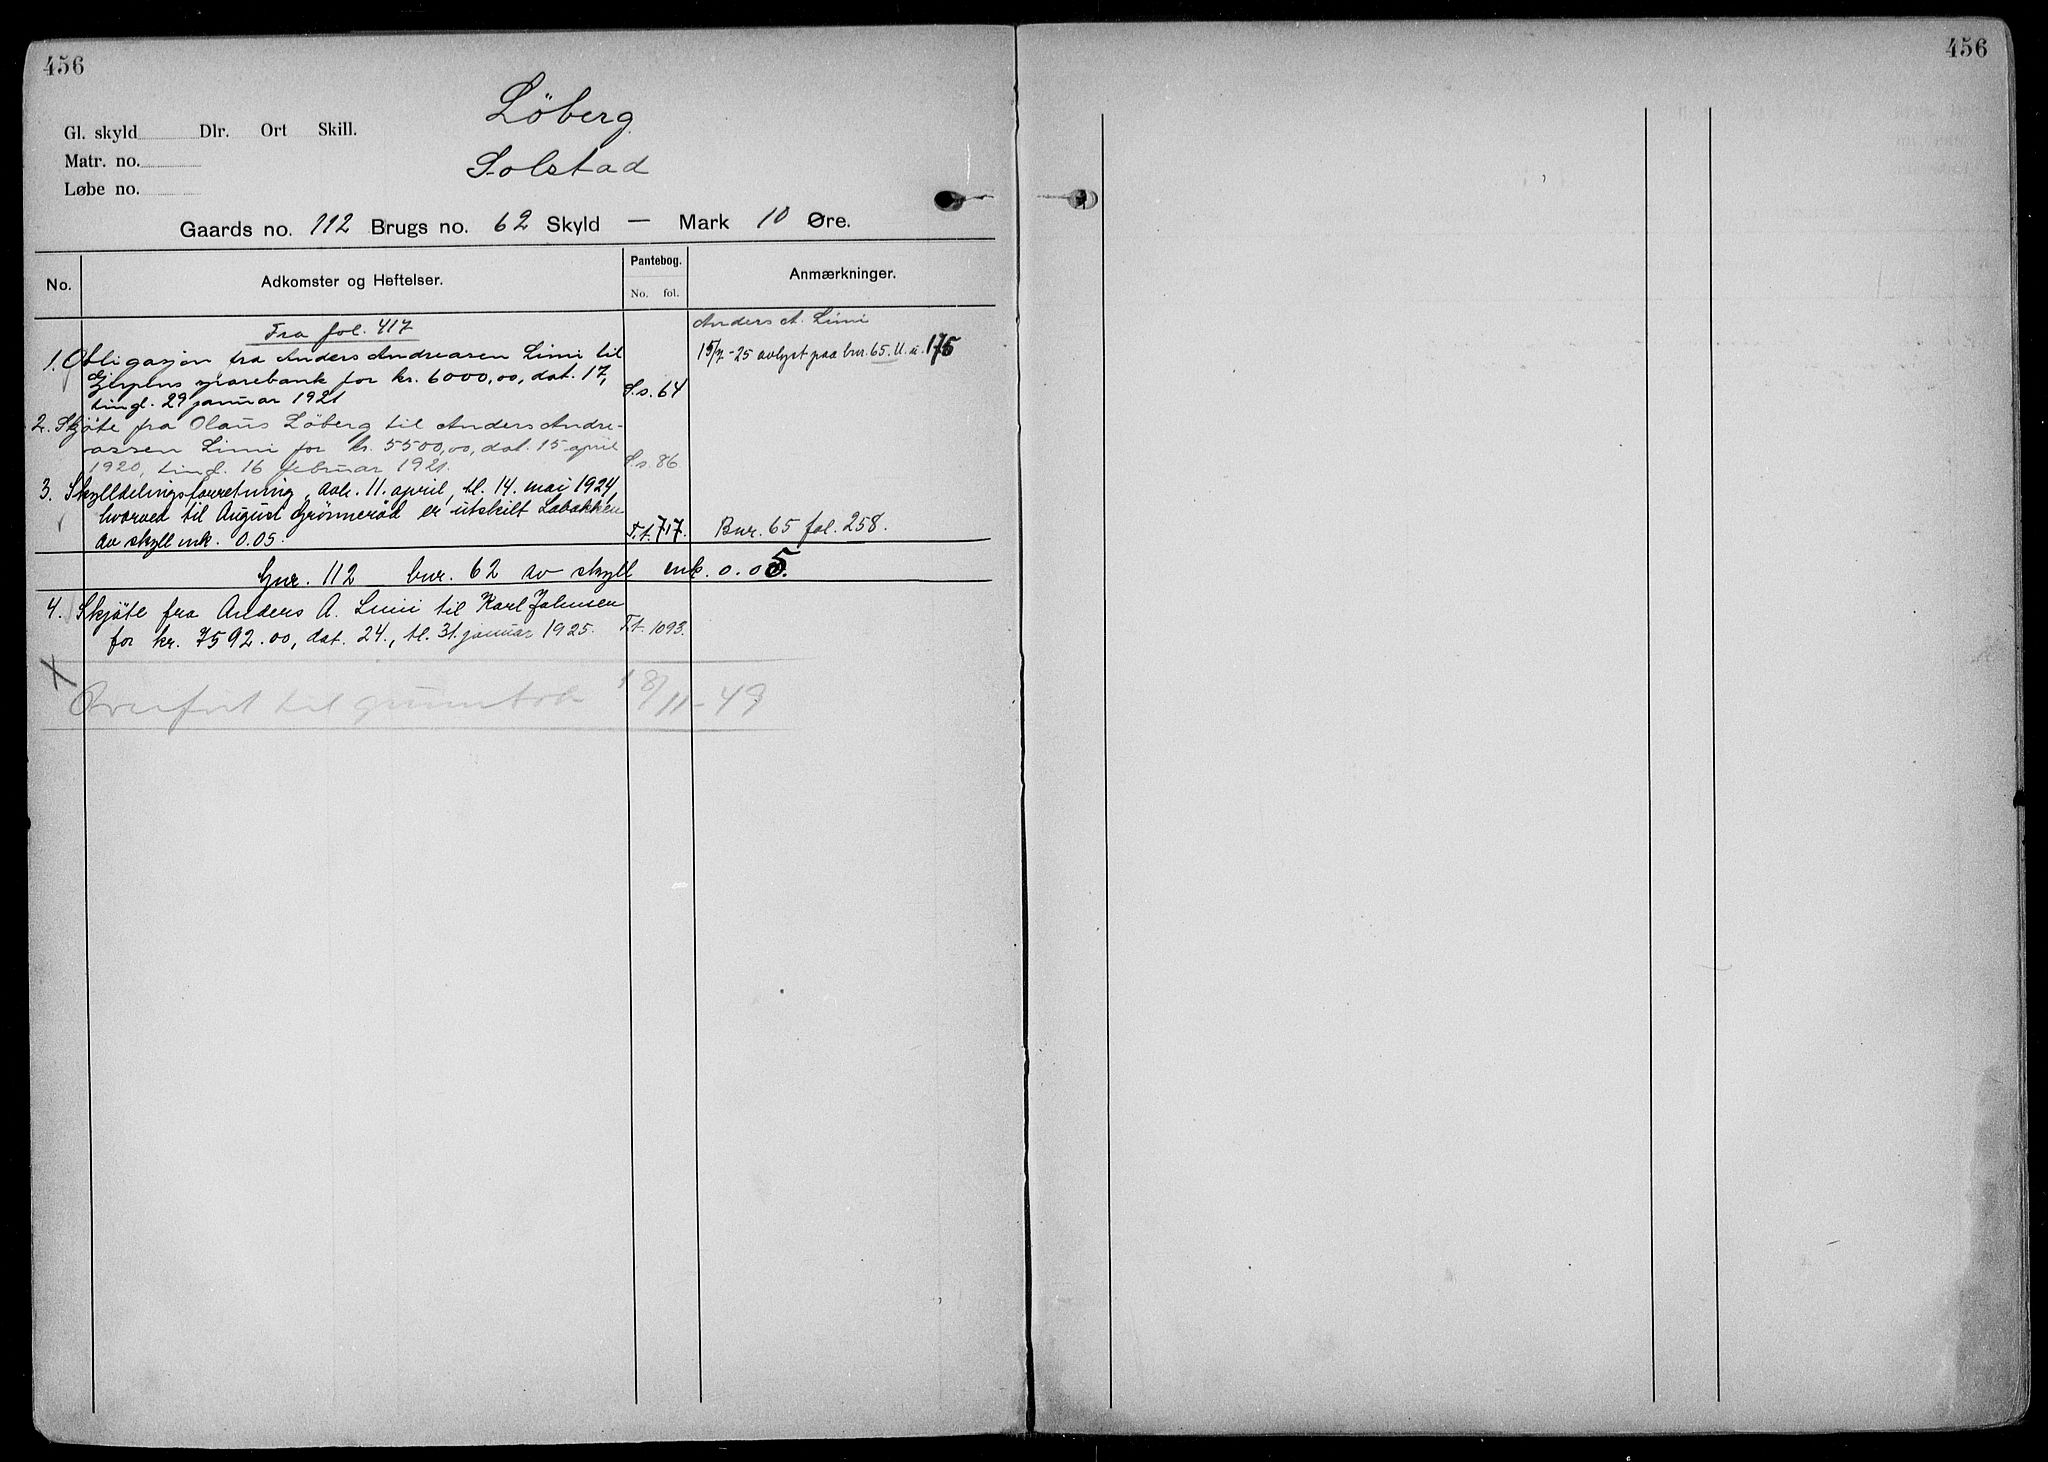 456
456
Löberg
Gl. skyld Dlr. Ort Skill.
Matr. no.
Solstad
Løbe no.
Gaards no. 112 Brugs no. 62 Skyld — Mark 10 Øre.
No. Adkomster og Heftelser. Pantebog. No. fol. Anmærkninger.
Fra fol. 417 Anders A. Limi
1. Obligasjon fra Anders Andreasen Limi til 15/7-25 avlyst paa bnr. 65. U. u. 175
Gjerpens sparebank for kr. 6000,00, dat. 17,
tingl. 29 januar 1921 S.s. 64
2. Skjøte fra Olaus Løberg til Anders Andre-
assen Limi for kr. 5500,00, dat. 15 april
1920, tingl. 16 februar 1921. S.s. 86
3. Skylldelingsforretning, avh. 11. april, tl. 14. mai 1924,
hvorved til August Grönneröd er utskilt Labakken
av skyll mk. 0.05. T.t. 717. Bnr. 65 fol. 258.
Gnr. 112 bnr. 62 av skyll mk. 0.05.
4. Skjöte fra Anders A. Limi til Karl Johnsen
for kr. 7592.00, dat. 24., tl. 31. januar 1925. T.t. 1093.
X
Overført til grunnbok 18/11-49